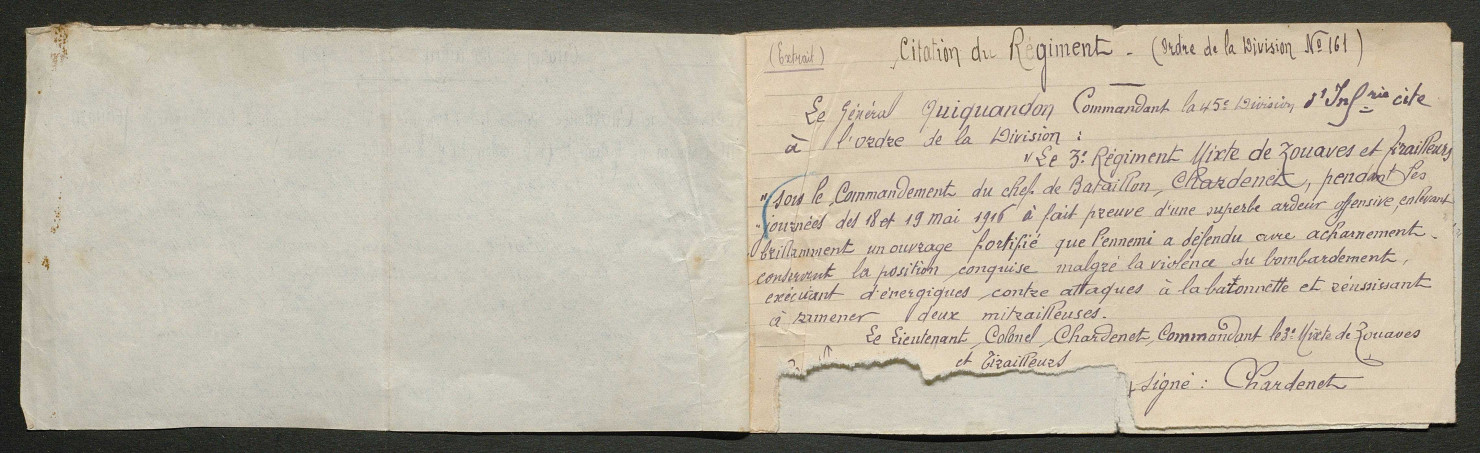 (Extrait) Citation du Régiment - (Ordre de la Division No 161)
Le Général Quiquandon Commandant la 45e Division d'Infrie cite
à l'ordre de la Division :
"Le 3e Régiment Mixte de Zouaves et Tirailleurs
"sous le Commandement du chef de Bataillon, Chardenet, pendant les
"journées des 18 et 19 mai 1916 à fait preuve d'une superbe ardeur offensive, enlevant
brillamment un ouvrage fortifié que l'ennemi a défendu avec acharnement -
conservant la position conquise malgré la violence du bombardement,
exécutant d'énergiques contre attaques à la baïonnette et réussissant
à ramener deux mitrailleuses.
Le Lieutenant Colonel Chardenet, Commandant le 3e Mixte de Zouaves
et Tirailleurs
signé : Chardenet